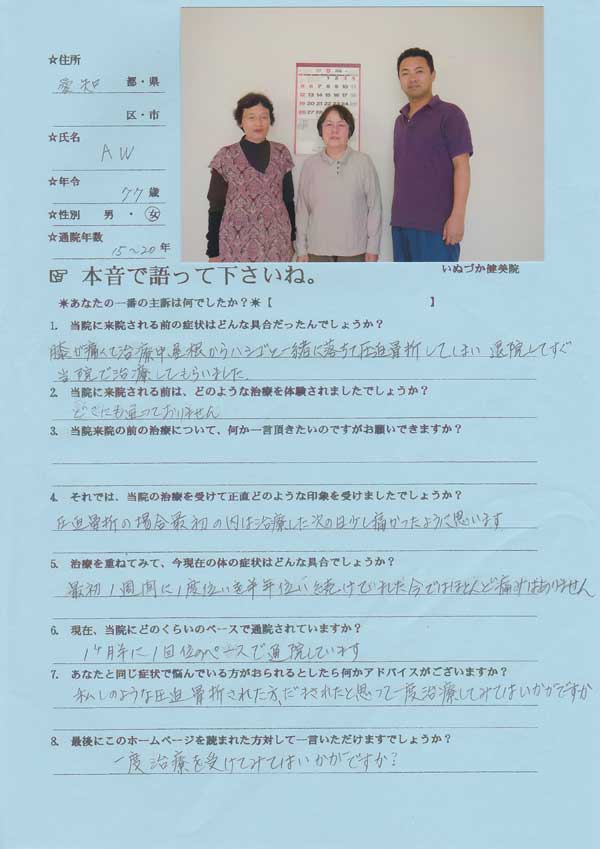 ☆住所
愛知 都・県
区・市
☆氏名
AW
☆年令
77 歳
☆性別 男・女
☆通院年数
15～20年
いぬづか健美院
☞ 本音で語って下さいね。
＊あなたの一番の主訴は何でしたか？＊【 】
1. 当院に来院される前の症状はどんな具合だったんでしょうか？
膝が痛くて治療中屋根からハシゴと一緒に落ちて圧迫骨折してしまい 退院してすぐ
当院で治療してもらいました
2. 当院に来院される前は、どのような治療を体験されましたでしょうか？
どこにも通っておりません
3. 当院来院の前の治療について、何か一言頂きたいのですがお願いできますか？
4. それでは、当院の治療を受けて正直どのような印象を受けましたでしょうか？
圧迫骨折の場合最初の内は治療した次の日少し痛かったように思います
5. 治療を重ねてみて、今現在の体の症状はどんな具合でしょうか？
最初1週間に1度位いを半年位い続けていれた今ではほとんど痛みはありません
6. 現在、当院にどのくらいのペースで通院されていますか？
1ヶ月半に1回位のペースで通院しています
7. あなたと同じ症状で悩んでいる方がおられるとしたら何かアドバイスがございますか？
私しのような圧迫骨折された方、だまされたと思って一度治療してみてはいかがですか
8. 最後にこのホームページを読まれた方対して一言いただけますでしょうか？
一度治療を受けてみてはいかがですか？